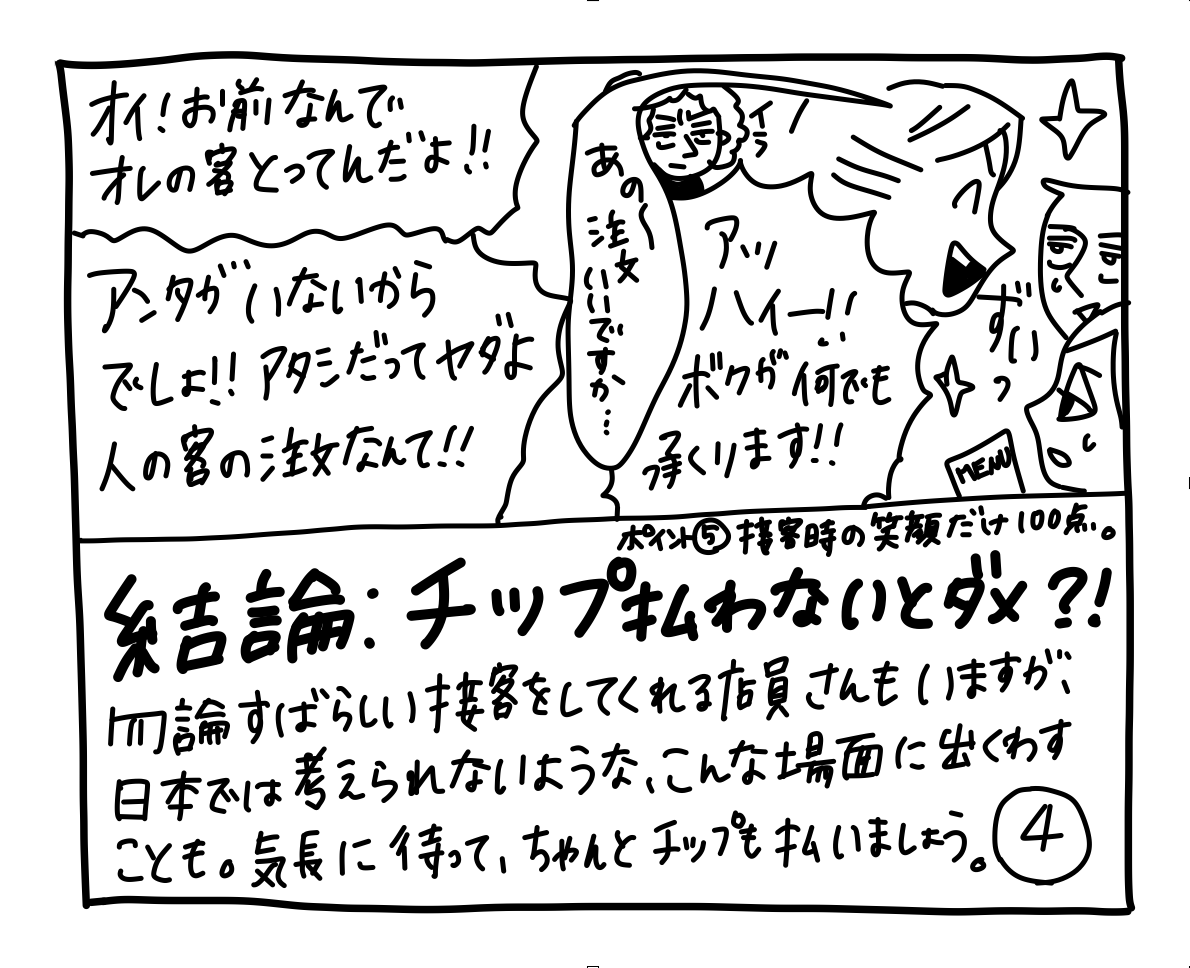 オイ!お前なんで
オレの客とってんだよ!!
アンタがいないから
でしょ!!アタシだってヤダよ
人の客の注文なんて!!
あの〜注文いいですか…
イラ
アッ
ハイー!!
ボクが何でも
承くります!!
ずいっ
MENU
ポイント⑤接客時の笑顔だけ100点。
結論:チップ払わないとダメ?!
勿論すばらしい接客をしてくれる店員さんもいますが、
日本では考えられないような、こんな場面に出くわす
ことも。気長に待って、ちゃんとチップも払いましょう。
4